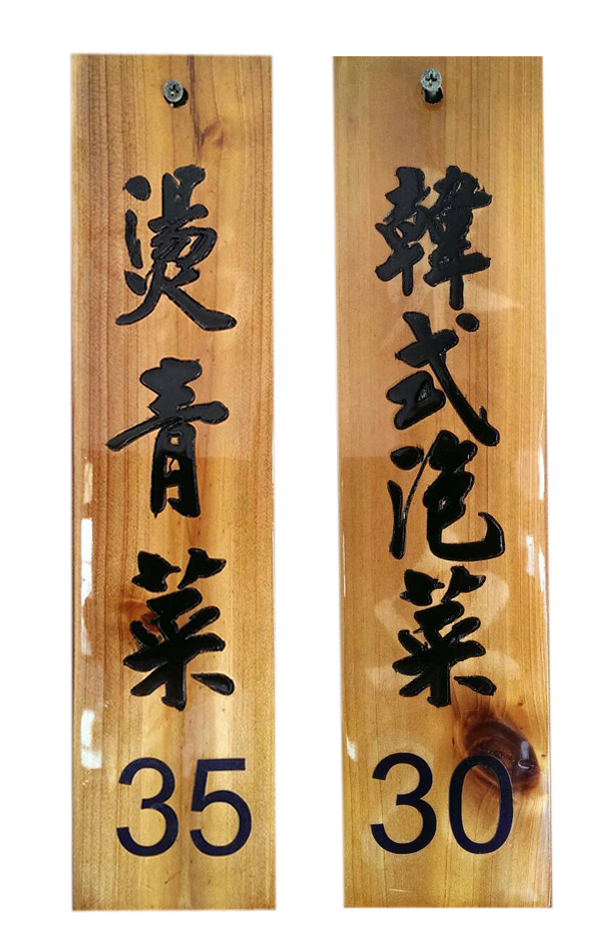 燙青菜
35
韓式泡菜
30